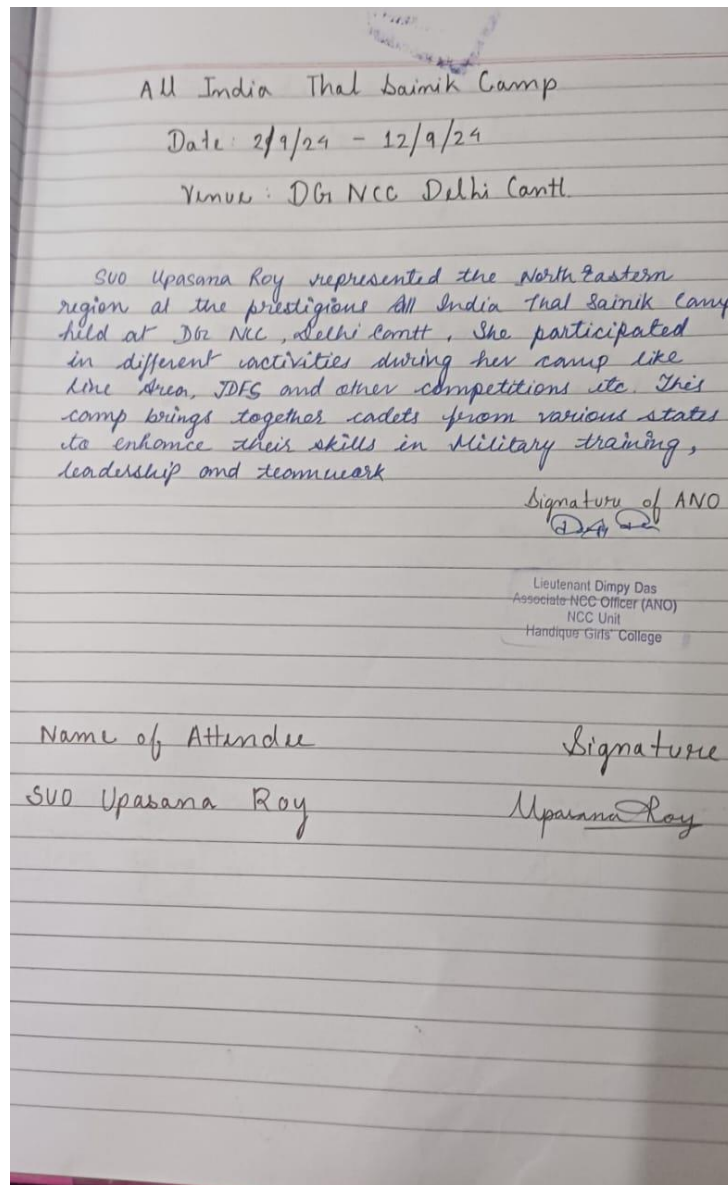 All India Thal Sainik Camp
Date: 2/9/24 - 12/9/24
Venue: DG NCC Delhi Cantt
SUO Upasana Roy represented the North Eastern
region at the prestigious All India Thal Sainik Camp
held at DG NCC, Delhi Cantt, She participated
in different activities during her camp like
Line Area, JDFS and other competitions etc. This
camp brings together cadets from various states
to enhance their skills in Military training,
leadership and teamwork
Signature of ANO
Lieutenant Dimpy Das
Associate NCC Officer (ANO)
NCC Unit
Handique Girls' College
Name of Attendee Signature
SUO Upasana Roy Upasana Roy